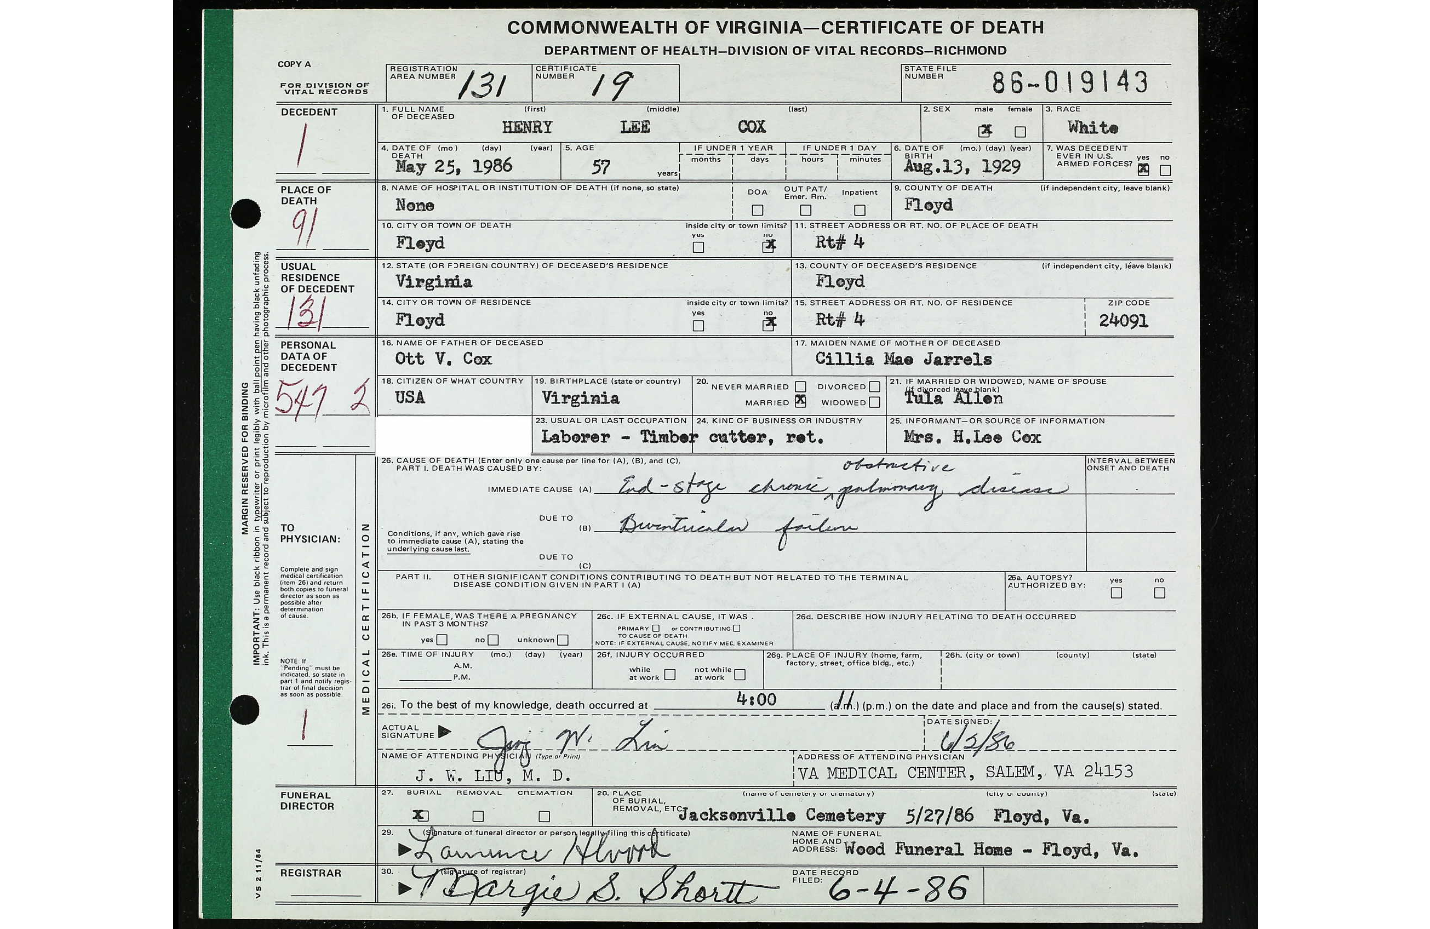 COMMONWEALTH OF VIRGINIA—CERTIFICATE OF DEATH
DEPARTMENT OF HEALTH—DIVISION OF VITAL RECORDS—RICHMOND
COPY A
FOR DIVISION OF VITAL RECORDS
REGISTRATION AREA NUMBER 131
CERTIFICATE NUMBER 19
STATE FILE NUMBER 86-019143
DECEDENT
1
1. FULL NAME OF DECEASED (first) (middle) (last)
HENRY LEE COX
2. SEX male female
x
3. RACE
White
4. DATE OF DEATH (mo.) (day) (year)
May 25, 1986
5. AGE
57 years
IF UNDER 1 YEAR months days
IF UNDER 1 DAY hours minutes
6. DATE OF BIRTH (mo.) (day) (year)
Aug.13, 1929
7. WAS DECEDENT EVER IN U.S. ARMED FORCES? yes no
x
PLACE OF DEATH
91
8. NAME OF HOSPITAL OR INSTITUTION OF DEATH (if none, so state)
None
DOA OUT PAT/ Emer. Rm. Inpatient
9. COUNTY OF DEATH (if independent city, leave blank)
Floyd
10. CITY OR TOWN OF DEATH inside city or town limits? yes no
Floyd x
11. STREET ADDRESS OR RT. NO. OF PLACE OF DEATH
Rt# 4
USUAL RESIDENCE OF DECEDENT
131
12. STATE (OR FOREIGN COUNTRY) OF DECEASED'S RESIDENCE
Virginia
13. COUNTY OF DECEASED'S RESIDENCE (if independent city, leave blank)
Floyd
14. CITY OR TOWN OF RESIDENCE inside city or town limits? yes no
Floyd x
15. STREET ADDRESS OR RT. NO. OF RESIDENCE ZIP CODE
Rt# 4 24091
PERSONAL DATA OF DECEDENT
547 2
16. NAME OF FATHER OF DECEASED
Ott V. Cox
17. MAIDEN NAME OF MOTHER OF DECEASED
Cillia Mae Jarrels
18. CITIZEN OF WHAT COUNTRY
USA
19. BIRTHPLACE (state or country)
Virginia
20. NEVER MARRIED DIVORCED
MARRIED x WIDOWED
21. IF MARRIED OR WIDOWED, NAME OF SPOUSE
(if divorced leave blank)
Tula Allen
23. USUAL OR LAST OCCUPATION
24. KIND OF BUSINESS OR INDUSTRY
Laborer - Timber cutter, ret.
25. INFORMANT—OR SOURCE OF INFORMATION
Mrs. H.Lee Cox
MARGIN RESERVED FOR BINDING
IMPORTANT: Use black ribbon in typewriter or print legibly with ball point pen having black unfading
ink. This is a permanent record and subject to reproduction by microfilm and other photographic process.
TO PHYSICIAN:
Complete and sign medical certification (item 26) and return both copies to funeral director as soon as possible after determination of cause.
NOTE: If "Pending" must be indicated, so state in part 1 and notify registrar of final decision as soon as possible.
1
MEDICAL CERTIFICATION
26. CAUSE OF DEATH (Enter only one cause per line for (A), (B), and (C).
PART I. DEATH WAS CAUSED BY:
INTERVAL BETWEEN ONSET AND DEATH
obstructive
IMMEDIATE CAUSE (A) End-stage chronic ^ pulmonary disease
DUE TO (B) Biventricular failure
Conditions, if any, which gave rise to immediate cause (A), stating the underlying cause last.
DUE TO (C)
PART II. OTHER SIGNIFICANT CONDITIONS CONTRIBUTING TO DEATH BUT NOT RELATED TO THE TERMINAL DISEASE CONDITION GIVEN IN PART I (A)
26a. AUTOPSY? AUTHORIZED BY: yes no
26b. IF FEMALE, WAS THERE A PREGNANCY IN PAST 3 MONTHS?
yes no unknown
26c. IF EXTERNAL CAUSE, IT WAS
PRIMARY or CONTRIBUTING
TO CAUSE OF DEATH
NOTE: IF EXTERNAL CAUSE, NOTIFY MED. EXAMINER
26d. DESCRIBE HOW INJURY RELATING TO DEATH OCCURRED
26e. TIME OF INJURY (mo.) (day) (year)
A.M.
P.M.
26f. INJURY OCCURRED
while at work not while at work
26g. PLACE OF INJURY (home, farm, factory, street, office bldg., etc.)
26h. (city or town) (county) (state)
26i. To the best of my knowledge, death occurred at 4:00 (a.m.) (p.m.) on the date and place and from the cause(s) stated.
ACTUAL SIGNATURE W. Liu
DATE SIGNED: 6/2/86
NAME OF ATTENDING PHYSICIAN (Type or Print)
J. W. LIU, M. D.
ADDRESS OF ATTENDING PHYSICIAN
VA MEDICAL CENTER, SALEM, VA 24153
FUNERAL DIRECTOR
27. BURIAL REMOVAL CREMATION
x
28. PLACE OF BURIAL, REMOVAL, ETC. (name of cemetery or crematory) (city or county) (state)
Jacksonville Cemetery 5/27/86 Floyd, Va.
29. (Signature of funeral director or person legally filing this certificate)
Lawrence H Wood
NAME OF FUNERAL HOME AND ADDRESS: Wood Funeral Home - Floyd, Va.
REGISTRAR
30. (signature of registrar)
Margie S. Shortt
DATE RECORD FILED: 6-4-86
VS 2 11/84